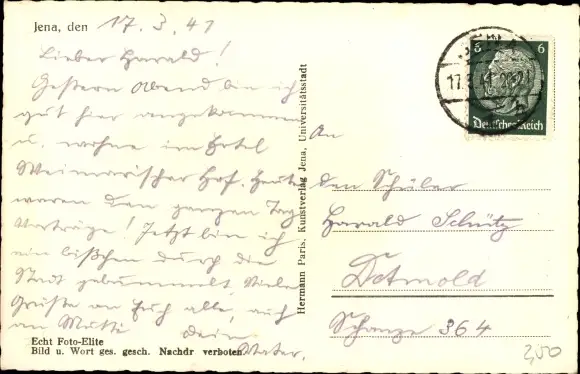 Jena, den 17. 3. 41
Lieber Harald!
Gestern Abend bin ich
gut hier angekommen
u. wohne im Hotel
Weimarischer Hof. Heute
waren den ganzen Tag
Vorträge! Jetzt bin ich
ein bißchen durch die
Stadt gebummelt. Viele
Grüße an Euch alle, auch
an Mutti Dein
Vater.
Echt Foto-Elite
Bild u. Wort ges. gesch. Nachdr verboten
Hermann Paris, Kunstverlag Jena, Universitätsstadt
JENA
17.3.41
b
6 6
Deutsches Reich
An
den Schüler
Harald Schütz
Detmold
Schanze 364
2,00